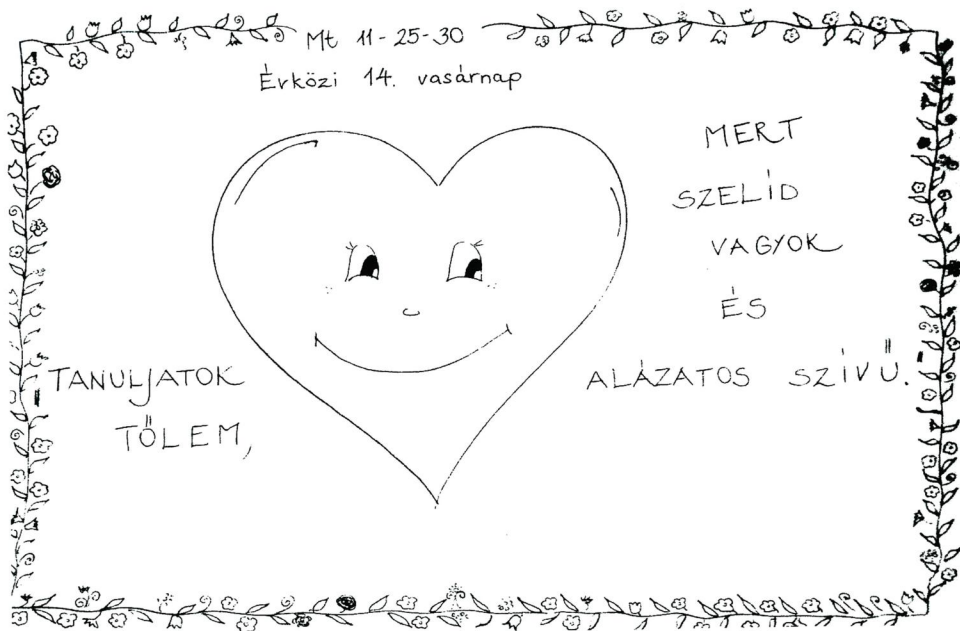 Mt 11-25-30
Érközi 14. vasárnap
TANULJATOK
TŐLEM,
MERT
SZELÍD
VAGYOK
ÉS
ALÁZATOS SZÍVŰ.